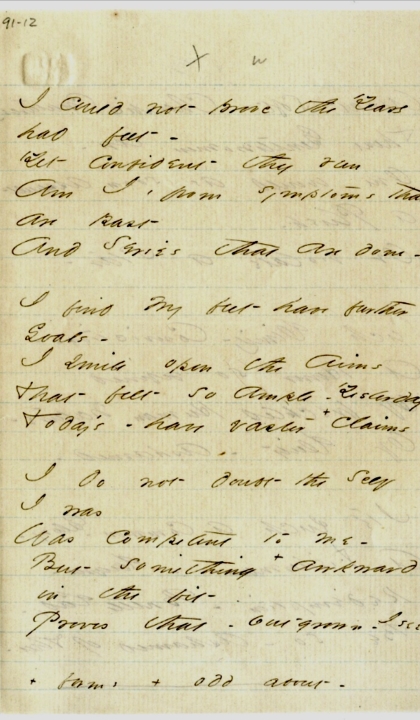 91-12
x w
I could not prove the Years
had feet -
Yet confident they run
Am I, from symptoms that
are past
And Series that are done -
I find my feet have further
Goals -
I smile upon the Aims
That felt so ample - Yesterday
Today's - have vaster + claims
I do not doubt the Self
I was
Was competent to me -
But something + awkward
in the fit -
Proves that - outgrown - I see
+ forms + odd about -